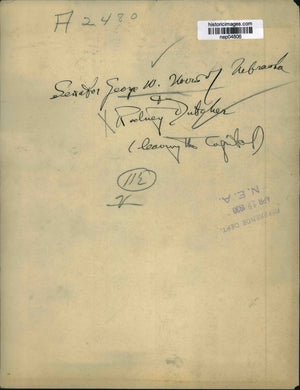 A 2480
historicimages.com
nep04806
Senator George W. Norris of Nebraska
+
X Rodney Dutcher
(leaving the Capitol)
311
N.E.A.
REFERENCE DEPT.